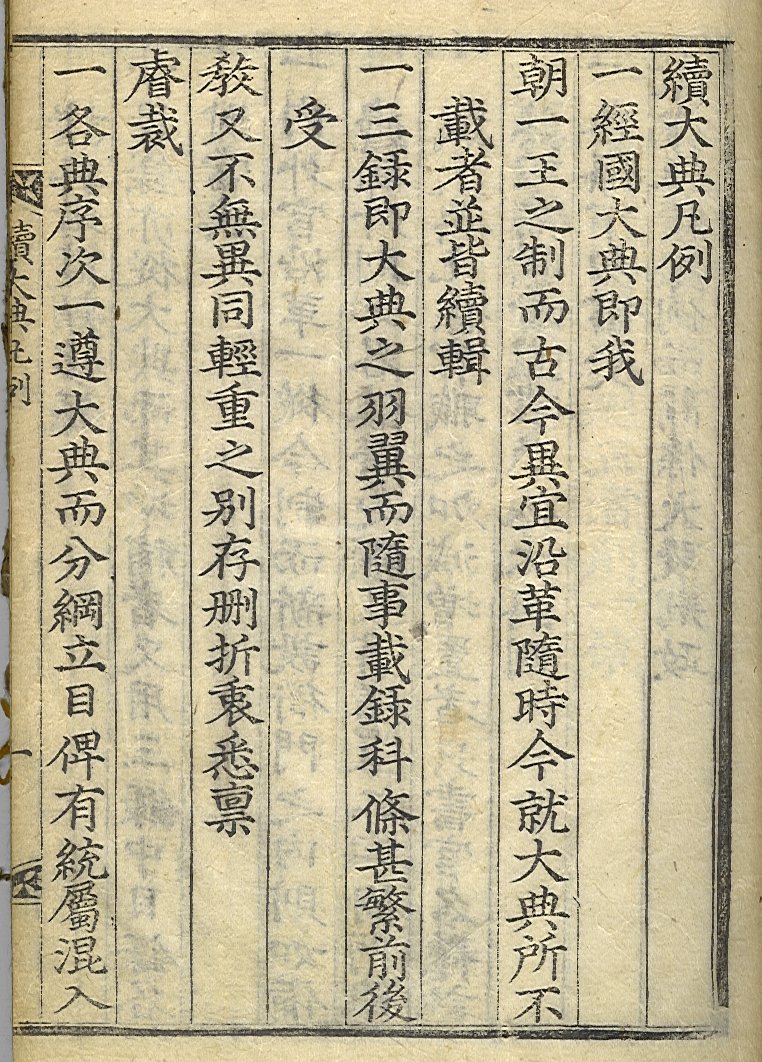 續大典凡例
一經國大典即我
朝一王之制而古今異宜沿革隨時今就大典所不
載者並皆續輯
一三錄即大典之羽翼而隨事載錄科條甚繁前後
受
敎又不無異同輕重之別存刪折衷悉稟
睿裁
一各典序次一遵大典而分綱立目俾有統屬混入
續大典凡例
一